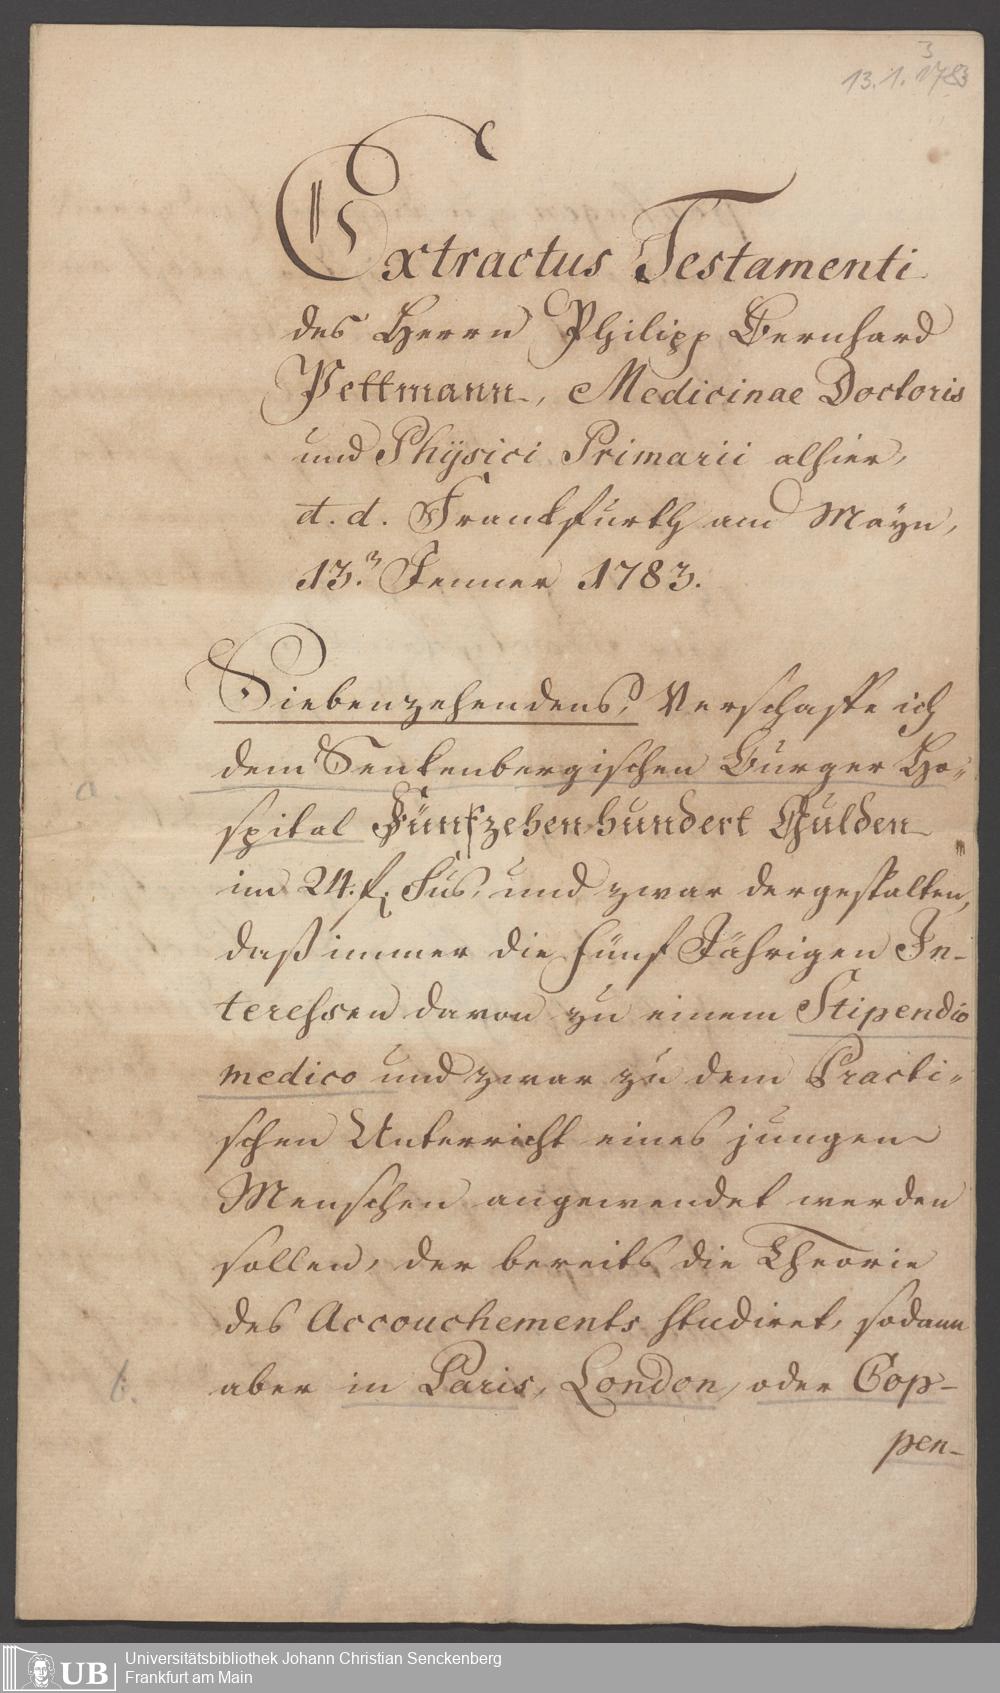 3
13. 1. 1783
Extractus Testamenti
des Herrn Philipp Bernhard
Pettmann, Medicinae Doctoris
und Physici Primarii alhier,
d. d. Franckfurth am Mayn,
13. Jenner 1783.
Siebenzehendens, Verschaffe ich
dem Senkenbergischen Burger Ho-
a.
spital Fünfzehenhundert Gulden
im 24. f. Fus, und zwar dergestalten,
daß immer die fünf Jährigen In-
teressen davon zu einem Stipendio
medico und zwar zu dem Practi-
schen Unterricht eines jungen
Menschen angewendet werden
sollen, der bereits die Theorie
des Accouchements studiret, sodann
b.
aber in Paris, London, oder Cop-
pen-
UB
Universitätsbibliothek Johann Christian Senckenberg
Frankfurt am Main